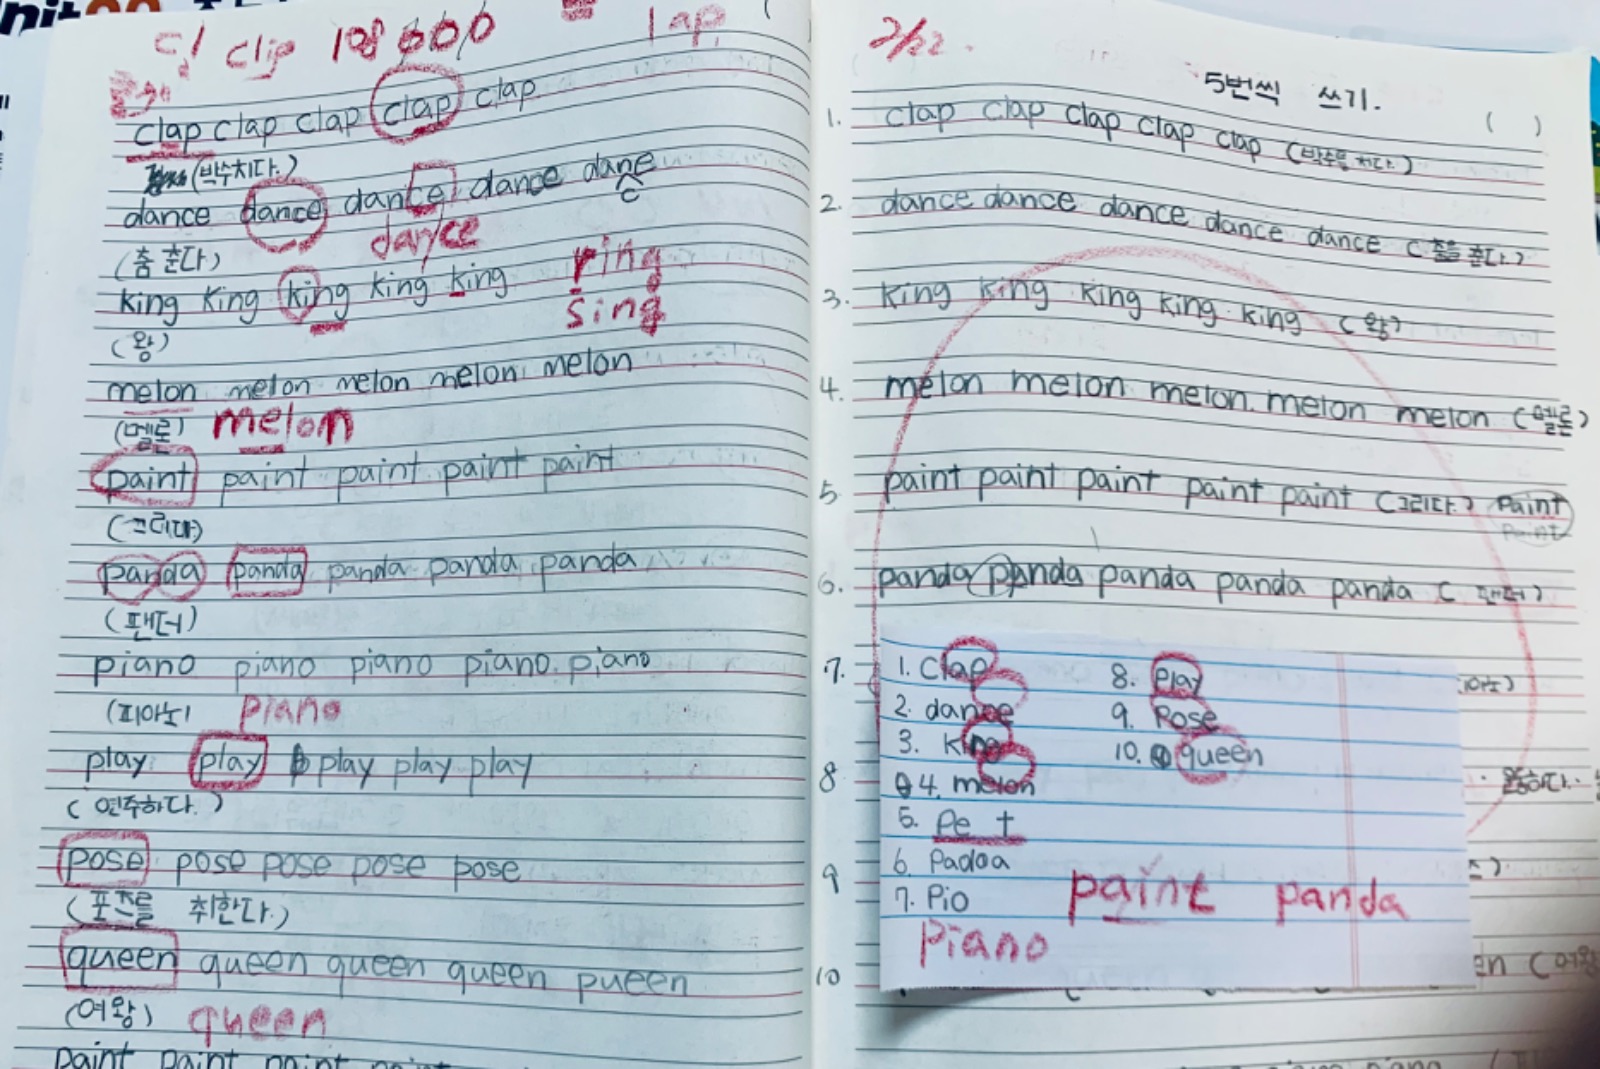 clip 108000 lap
clap clap clap clap clap
(박수치다.)
dance dance dance dance dane
c
dance
(춤 춘다)
king king king king king
ring
sing
(왕)
melon melon melon melon melon
(멜론) melon
paint paint paint paint paint
(그리다)
panda panda panda panda panda
(팬더)
piano piano piano piano piano
(피아노) piano
play play play play play
(연주하다.)
pose pose pose pose pose
(포즈를 취한다.)
queen queen queen queen pueen
(여왕) queen
paint paint paint
2/22.
5번씩 쓰기.
( )
1. clap clap clap clap clap (박수를 치다.)
2. dance dance dance dance dance (춤을 춘다.)
3. king king king king king (왕)
4. melon melon melon melon melon (멜론)
5. paint paint paint paint paint (그리다.) Paint
Paint
6. panda panda panda panda panda (팬더)
7.
8
9
10
en (여왕
1. Clap
2. dance
3. king
4. melon
5. Pe t
6. Padoa
7. Pio
8. Play
9. Rose
10. queen
paint panda
Piano